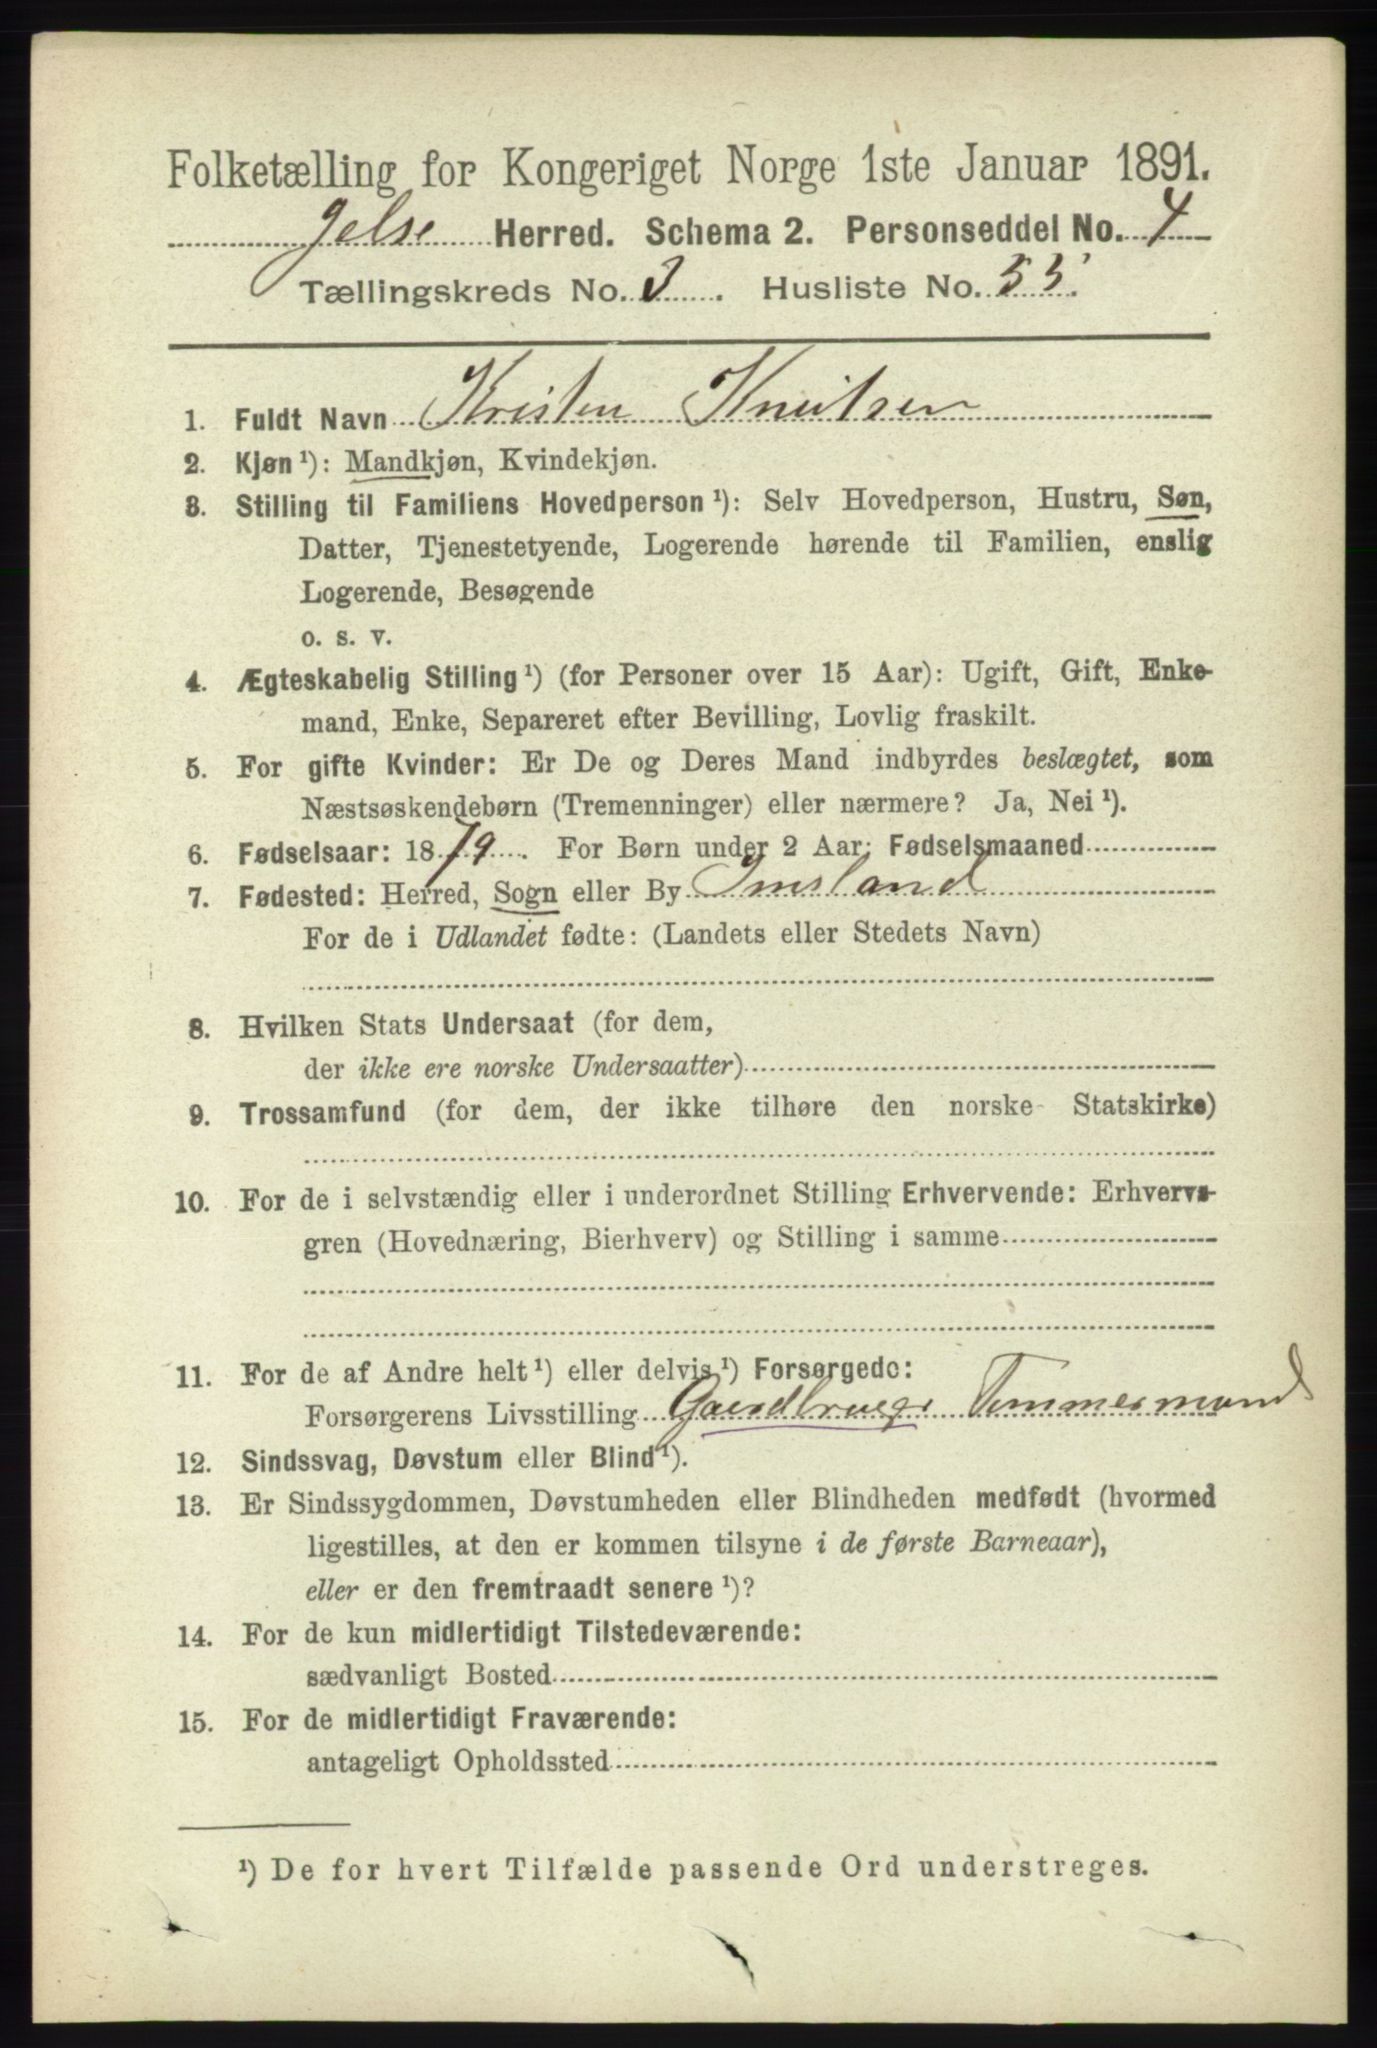 Folketælling for Kongeriget Norge 1ste Januar 1891.
Jelse Herred. Schema 2. Personseddel No. 4
Tællingskreds No. 3. Husliste No. 55.
1. Fuldt Navn Kristen Knutsen
2. Kjøn ¹): Mandkjøn, Kvindekjøn.
3. Stilling til Familiens Hovedperson ¹): Selv Hovedperson, Hustru, Søn,
Datter, Tjenestetyende, Logerende hørende til Familien, enslig
Logerende, Besøgende
o. s. v.
4. Ægteskabelig Stilling ¹) (for Personer over 15 Aar): Ugift, Gift, Enke-
mand, Enke, Separeret efter Bevilling, Lovlig fraskilt.
5. For gifte Kvinder: Er De og Deres Mand indbyrdes beslægtet, som
Næstsøskendebørn (Tremenninger) eller nærmere? Ja, Nei ¹).
6. Fødselsaar: 1879. For Børn under 2 Aar: Fødselsmaaned
7. Fødested: Herred, Sogn eller By Imsland
For de i Udlandet fødte: (Landets eller Stedets Navn)
8. Hvilken Stats Undersaat (for dem,
der ikke ere norske Undersaatter)
9. Trossamfund (for dem, der ikke tilhøre den norske Statskirke)
10. For de i selvstændig eller i underordnet Stilling Erhvervende: Erhvervs-
gren (Hovednæring, Bierhverv) og Stilling i samme
11. For de af Andre helt ¹) eller delvis ¹) Forsørgede:
Forsørgerens Livsstilling Gaardbruger Tømmermand
12. Sindssvag, Døvstum eller Blind ¹).
13. Er Sindssygdommen, Døvstumheden eller Blindheden medfødt (hvormed
ligestilles, at den er kommen tilsyne i de første Barneaar),
eller er den fremtraadt senere ¹)?
14. For de kun midlertidigt Tilstedeværende:
sædvanligt Bosted
15. For de midlertidigt Fraværende:
antageligt Opholdssted
¹) De for hvert Tilfælde passende Ord understreges.